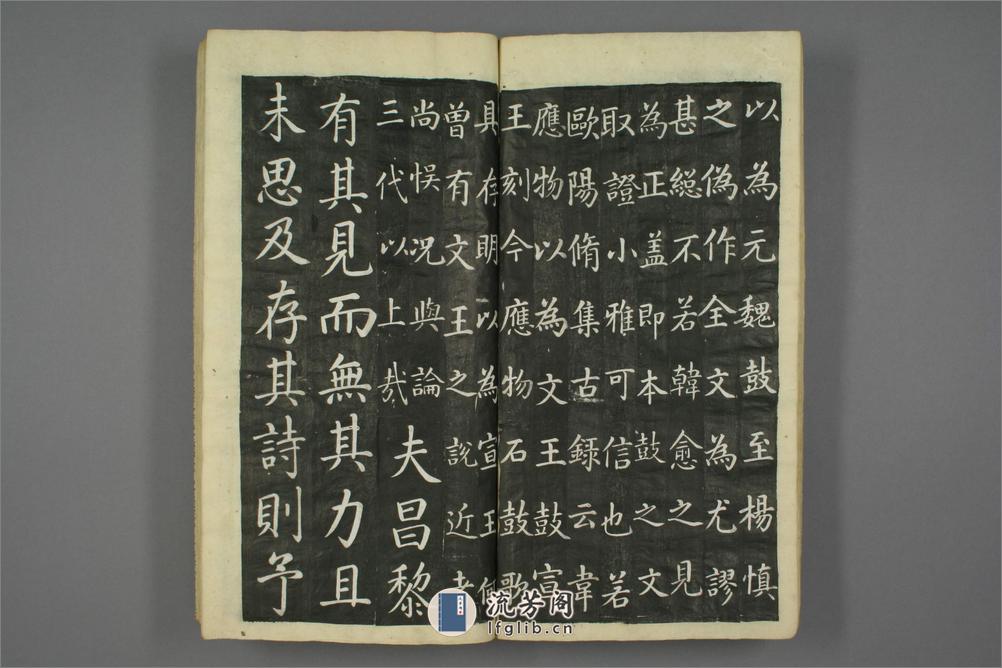 以為元魏鼓至楊慎
之偽作全文為尤謬
甚緫不若韓愈之見
為正盖即本鼓之文
取證小雅可信也若
歐陽脩集古録云韋
應物以為文王鼓宣
王刻今應物石鼓歌
具存明以為宣王何
曾有文王之說近者
尚悮况與論
三代以上哉
夫昌黎
有其見而無其力且
未思及存其詩則予
流芳阁
lfglib.cn